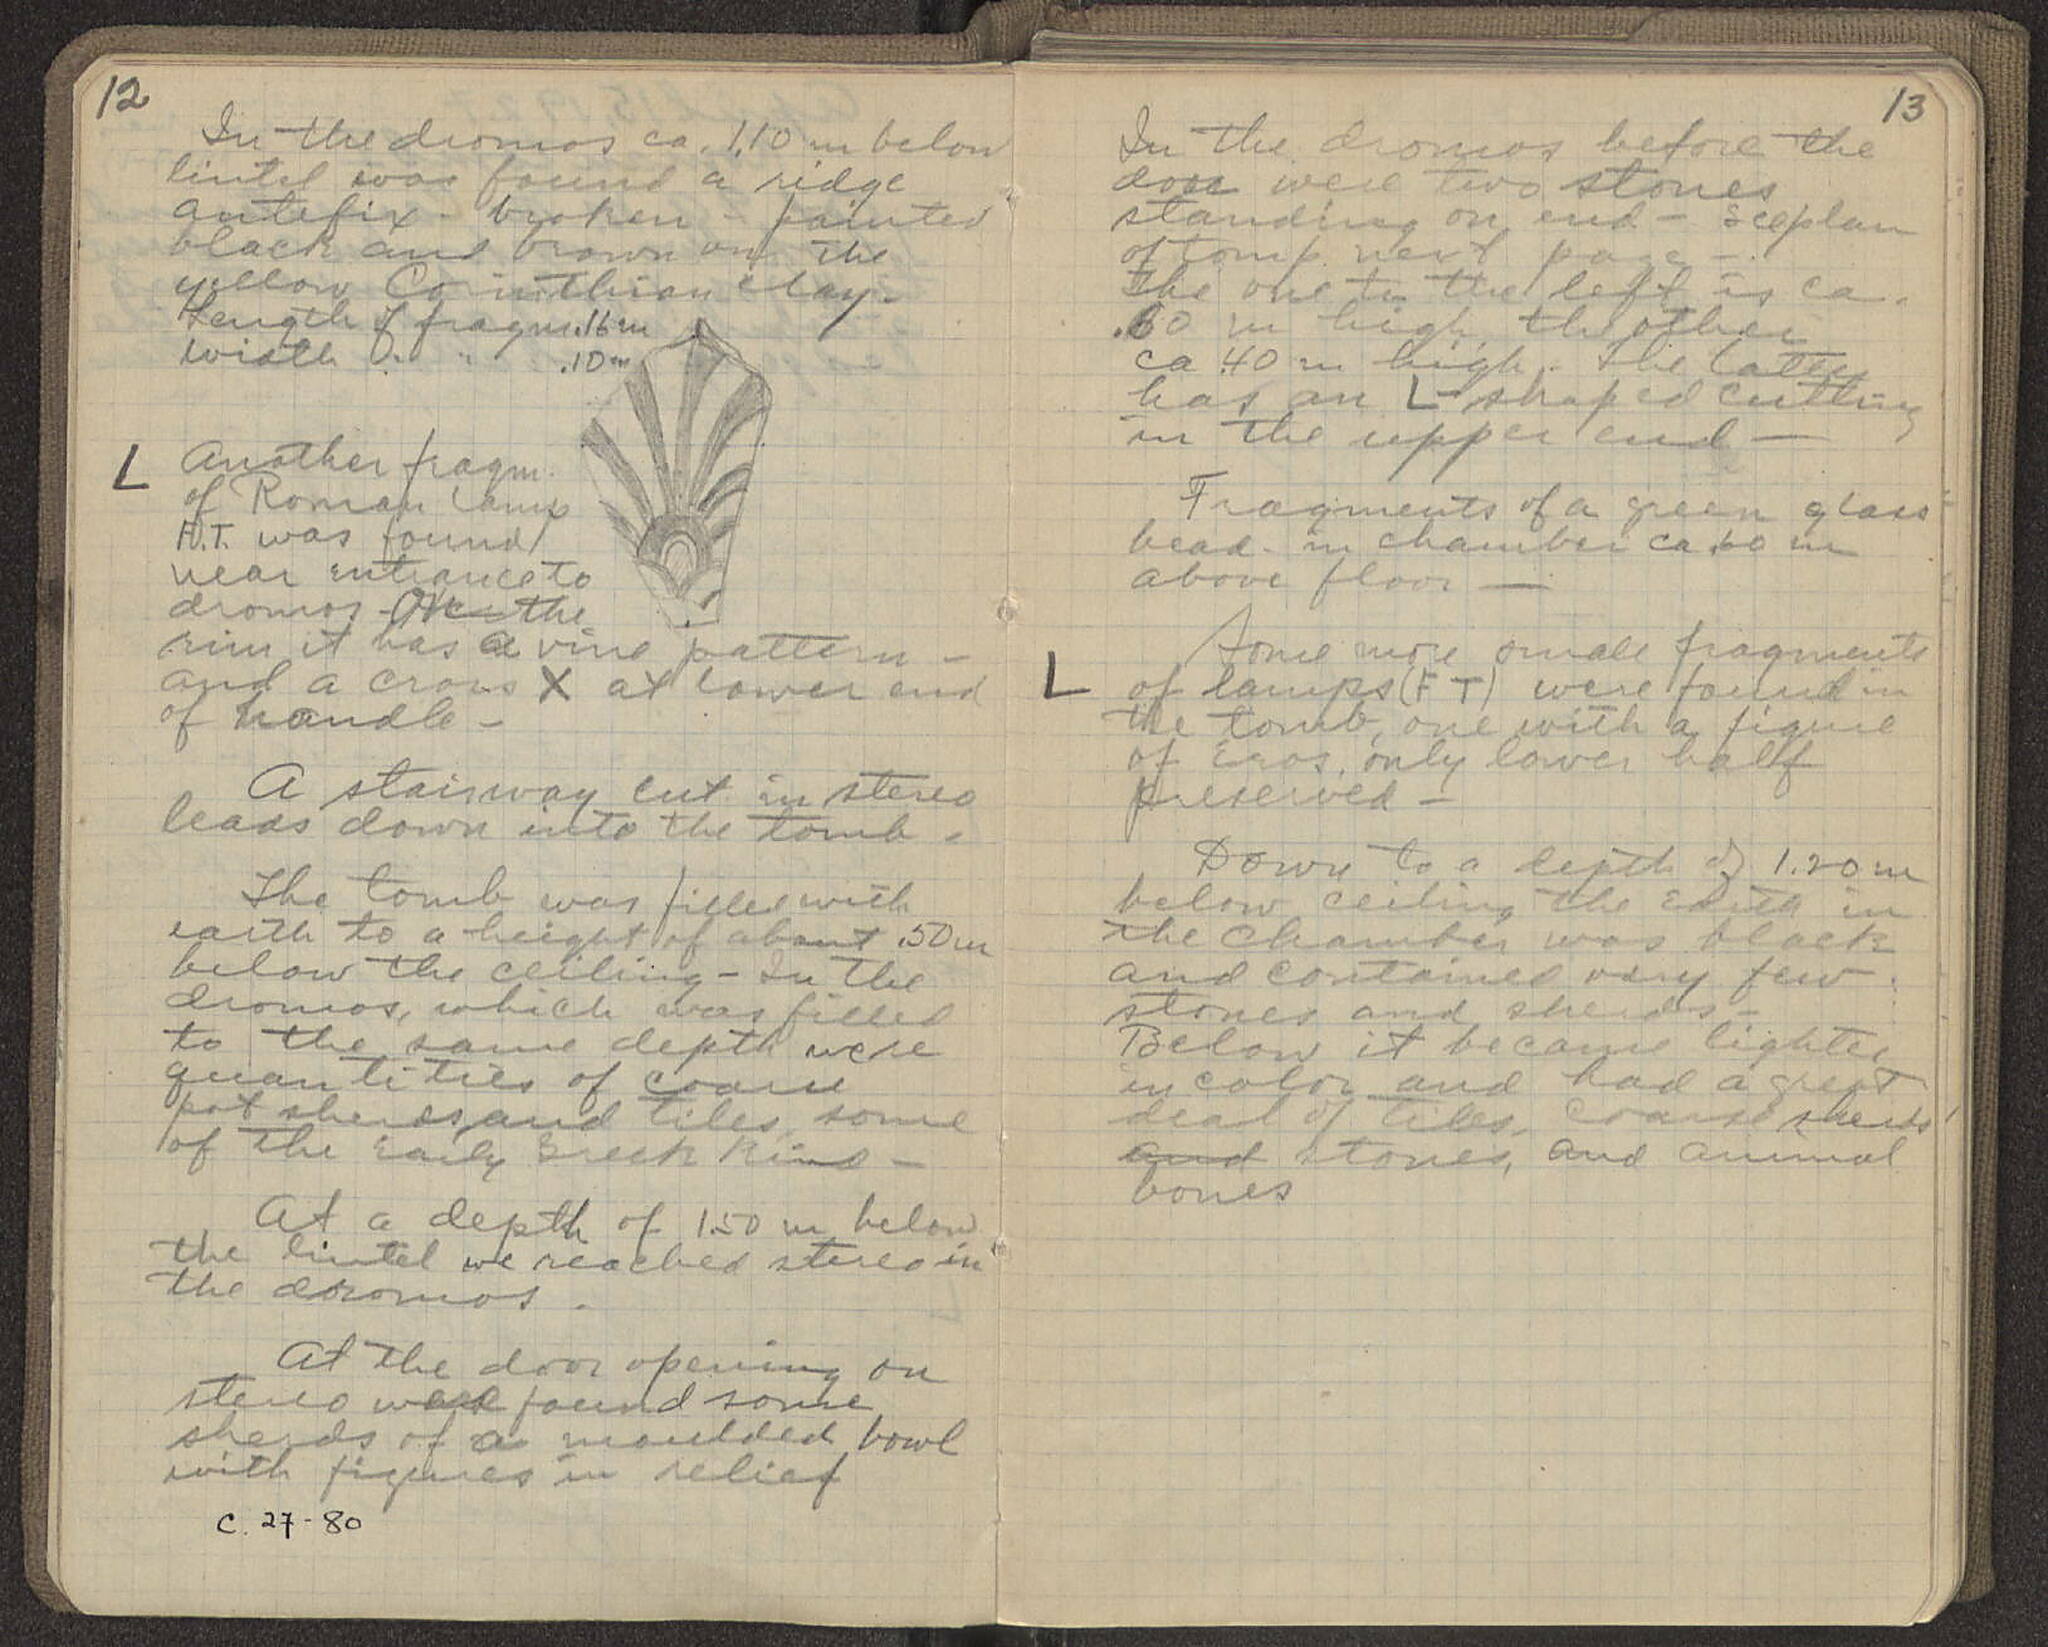 12
In the dromos ca. 1.10 m below
lintel was found a ridge
antefix - broken - painted
black and brown on the
yellow Corinthian clay.
Length of fragm .16 m
width " " .10 m
L Another fragm.
of Roman Lamp
F.T. was found
near entrance to
dromos - On the
rim it has a vine pattern -
and a cross X at lower end
of handle -
A stairway cut in stereo
leads down into the tomb.
The tomb was filled with
earth to a height of about .50 m
below the ceiling - In the
dromos, which was filled
to the same depth were
quantities of coarse
pot sherds and tiles, some
of the Early Greek kind -
At a depth of 1.50 m below
the lintel we reached stereo in
the dromos.
At the door opening on
stereo were found some
sherds of a moulded bowl
with figures in relief
C. 27-80
13
In the dromos before the
door were two stones
standing on end - See plan
of tomb next page -
The one to the left is ca.
.60 m high, the other
ca .40 m high. The latter
has an L-shaped cutting
in the upper end —
Fragments of a green glass
bead - in chamber ca .60 m
above floor —
Some more small fragments
L of lamps (F T) were found in
the tomb, one with a figure
of Eros, only lower half
preserved -
Down to a depth of 1.20 m
below ceiling the earth in
the chamber was black
and contained very few
stones and sherds -
Below it became lighter
in color and had a great
deal of tiles, coarse sherds
and stones, and animal
bones